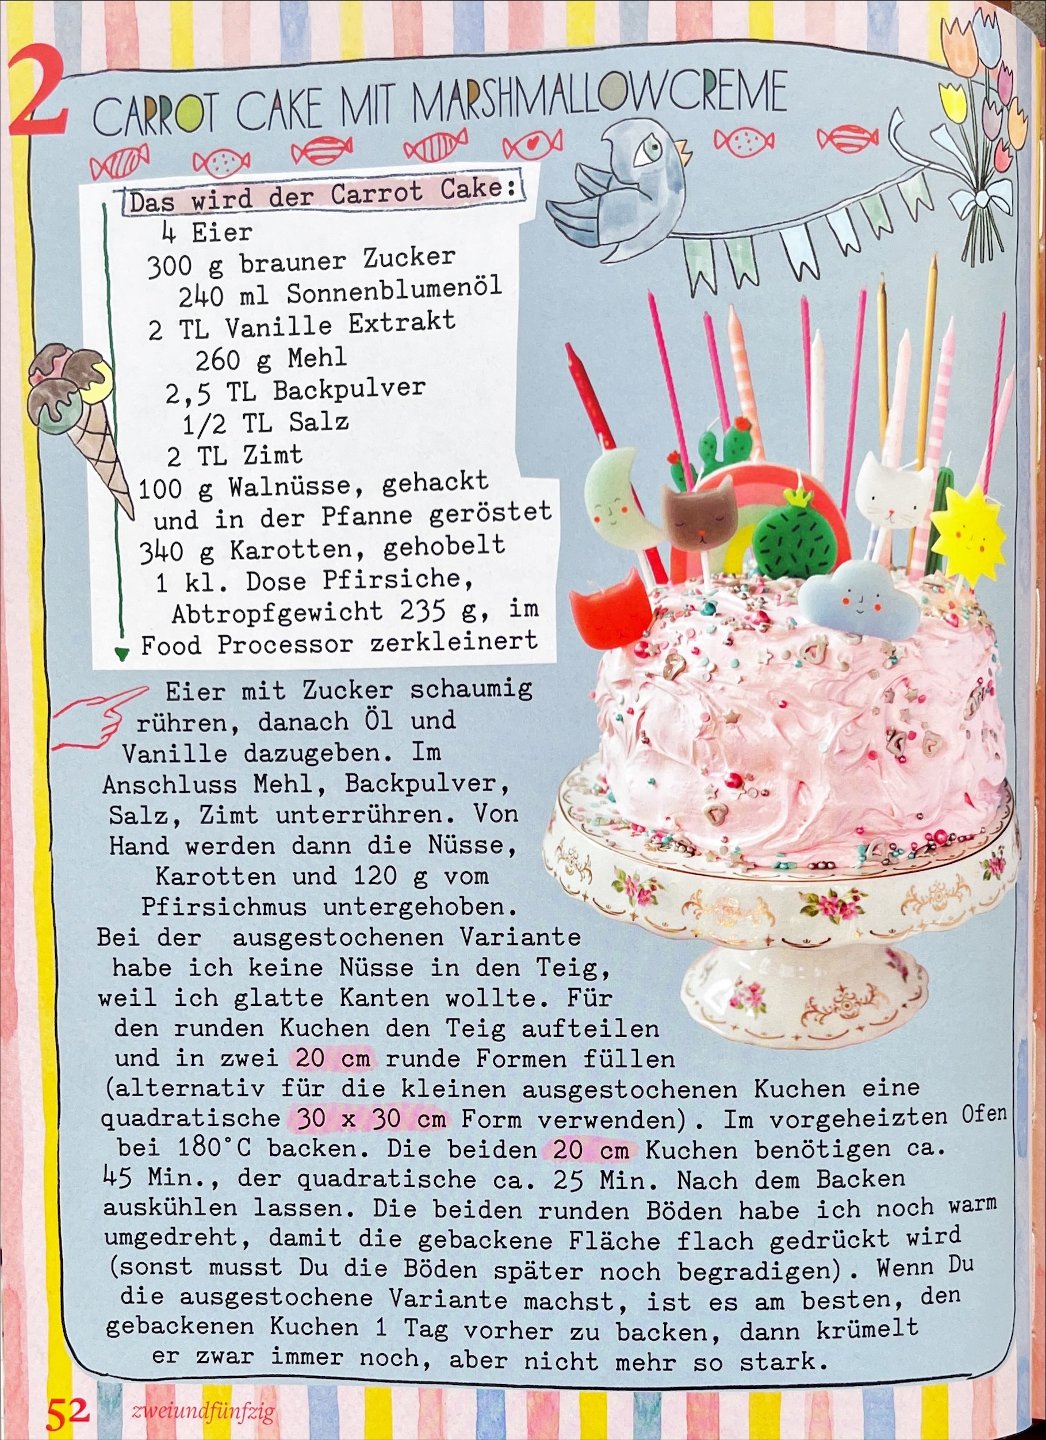 2
CARROT CAKE MIT MARSHMALLOWCREME
Das wird der Carrot Cake:
4 Eier
300 g brauner Zucker
240 ml Sonnenblumenöl
2 TL Vanille Extrakt
260 g Mehl
2,5 TL Backpulver
1/2 TL Salz
2 TL Zimt
100 g Walnüsse, gehackt
und in der Pfanne geröstet
340 g Karotten, gehobelt
1 kl. Dose Pfirsiche,
Abtropfgewicht 235 g, im
Food Processor zerkleinert
Eier mit Zucker schaumig
rühren, danach Öl und
Vanille dazugeben. Im
Anschluss Mehl, Backpulver,
Salz, Zimt unterrühren. Von
Hand werden dann die Nüsse,
Karotten und 120 g vom
Pfirsichmus untergehoben.
Bei der ausgestochenen Variante
habe ich keine Nüsse in den Teig,
weil ich glatte Kanten wollte. Für
den runden Kuchen den Teig aufteilen
und in zwei 20 cm runde Formen füllen
(alternativ für die kleinen ausgestochenen Kuchen eine
quadratische 30 x 30 cm Form verwenden). Im vorgeheizten Ofen
bei 180°C backen. Die beiden 20 cm Kuchen benötigen ca.
45 Min., der quadratische ca. 25 Min. Nach dem Backen
auskühlen lassen. Die beiden runden Böden habe ich noch warm
umgedreht, damit die gebackene Fläche flach gedrückt wird
(sonst musst Du die Böden später noch begradigen). Wenn Du
die ausgestochene Variante machst, ist es am besten, den
gebackenen Kuchen 1 Tag vorher zu backen, dann krümelt
er zwar immer noch, aber nicht mehr so stark.
52 zweiundfünfzig